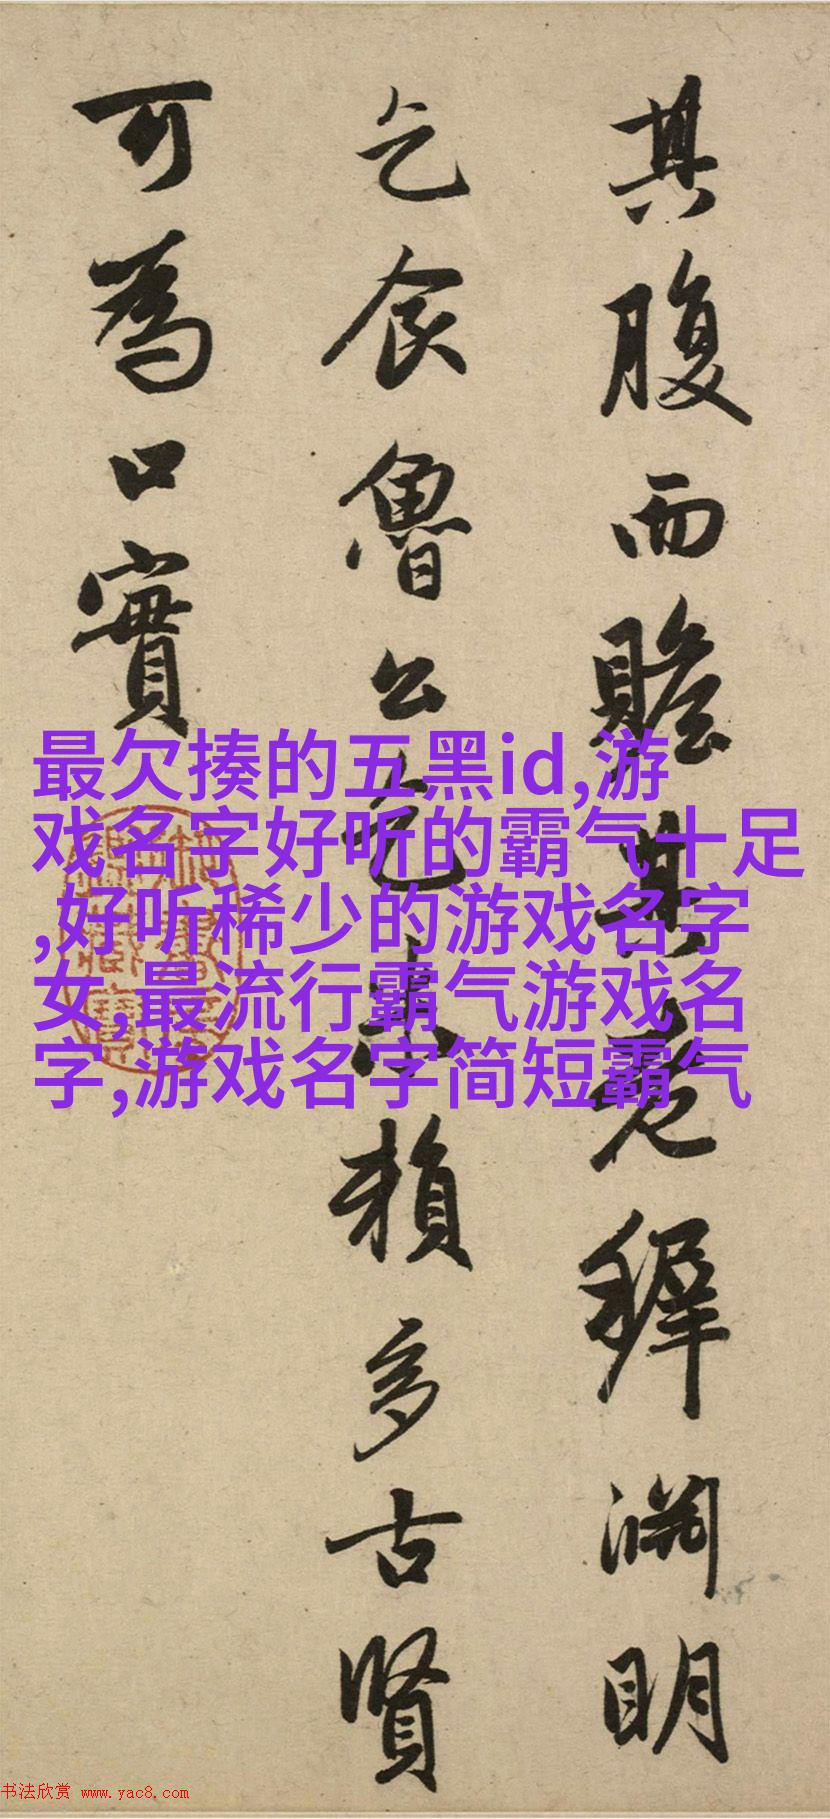 其腹而贍其老穉淵明
乞食魯公乞米賴多古賢
可為口實
最欠揍的五黑id,游
戏名字好听的霸气十足
,好听稀少的游戏名字
女,最流行霸气游戏名
字,游戏名字简短霸气
书法欣赏 www.yac8.com